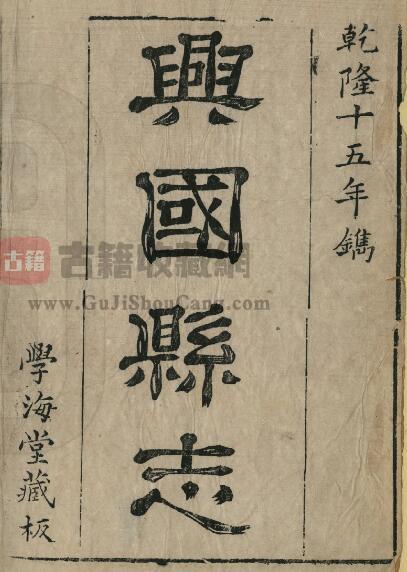 乾隆十五年鐫
興國縣志
學海堂藏板
古籍
古籍收藏網
www.GuJiShouCang.com